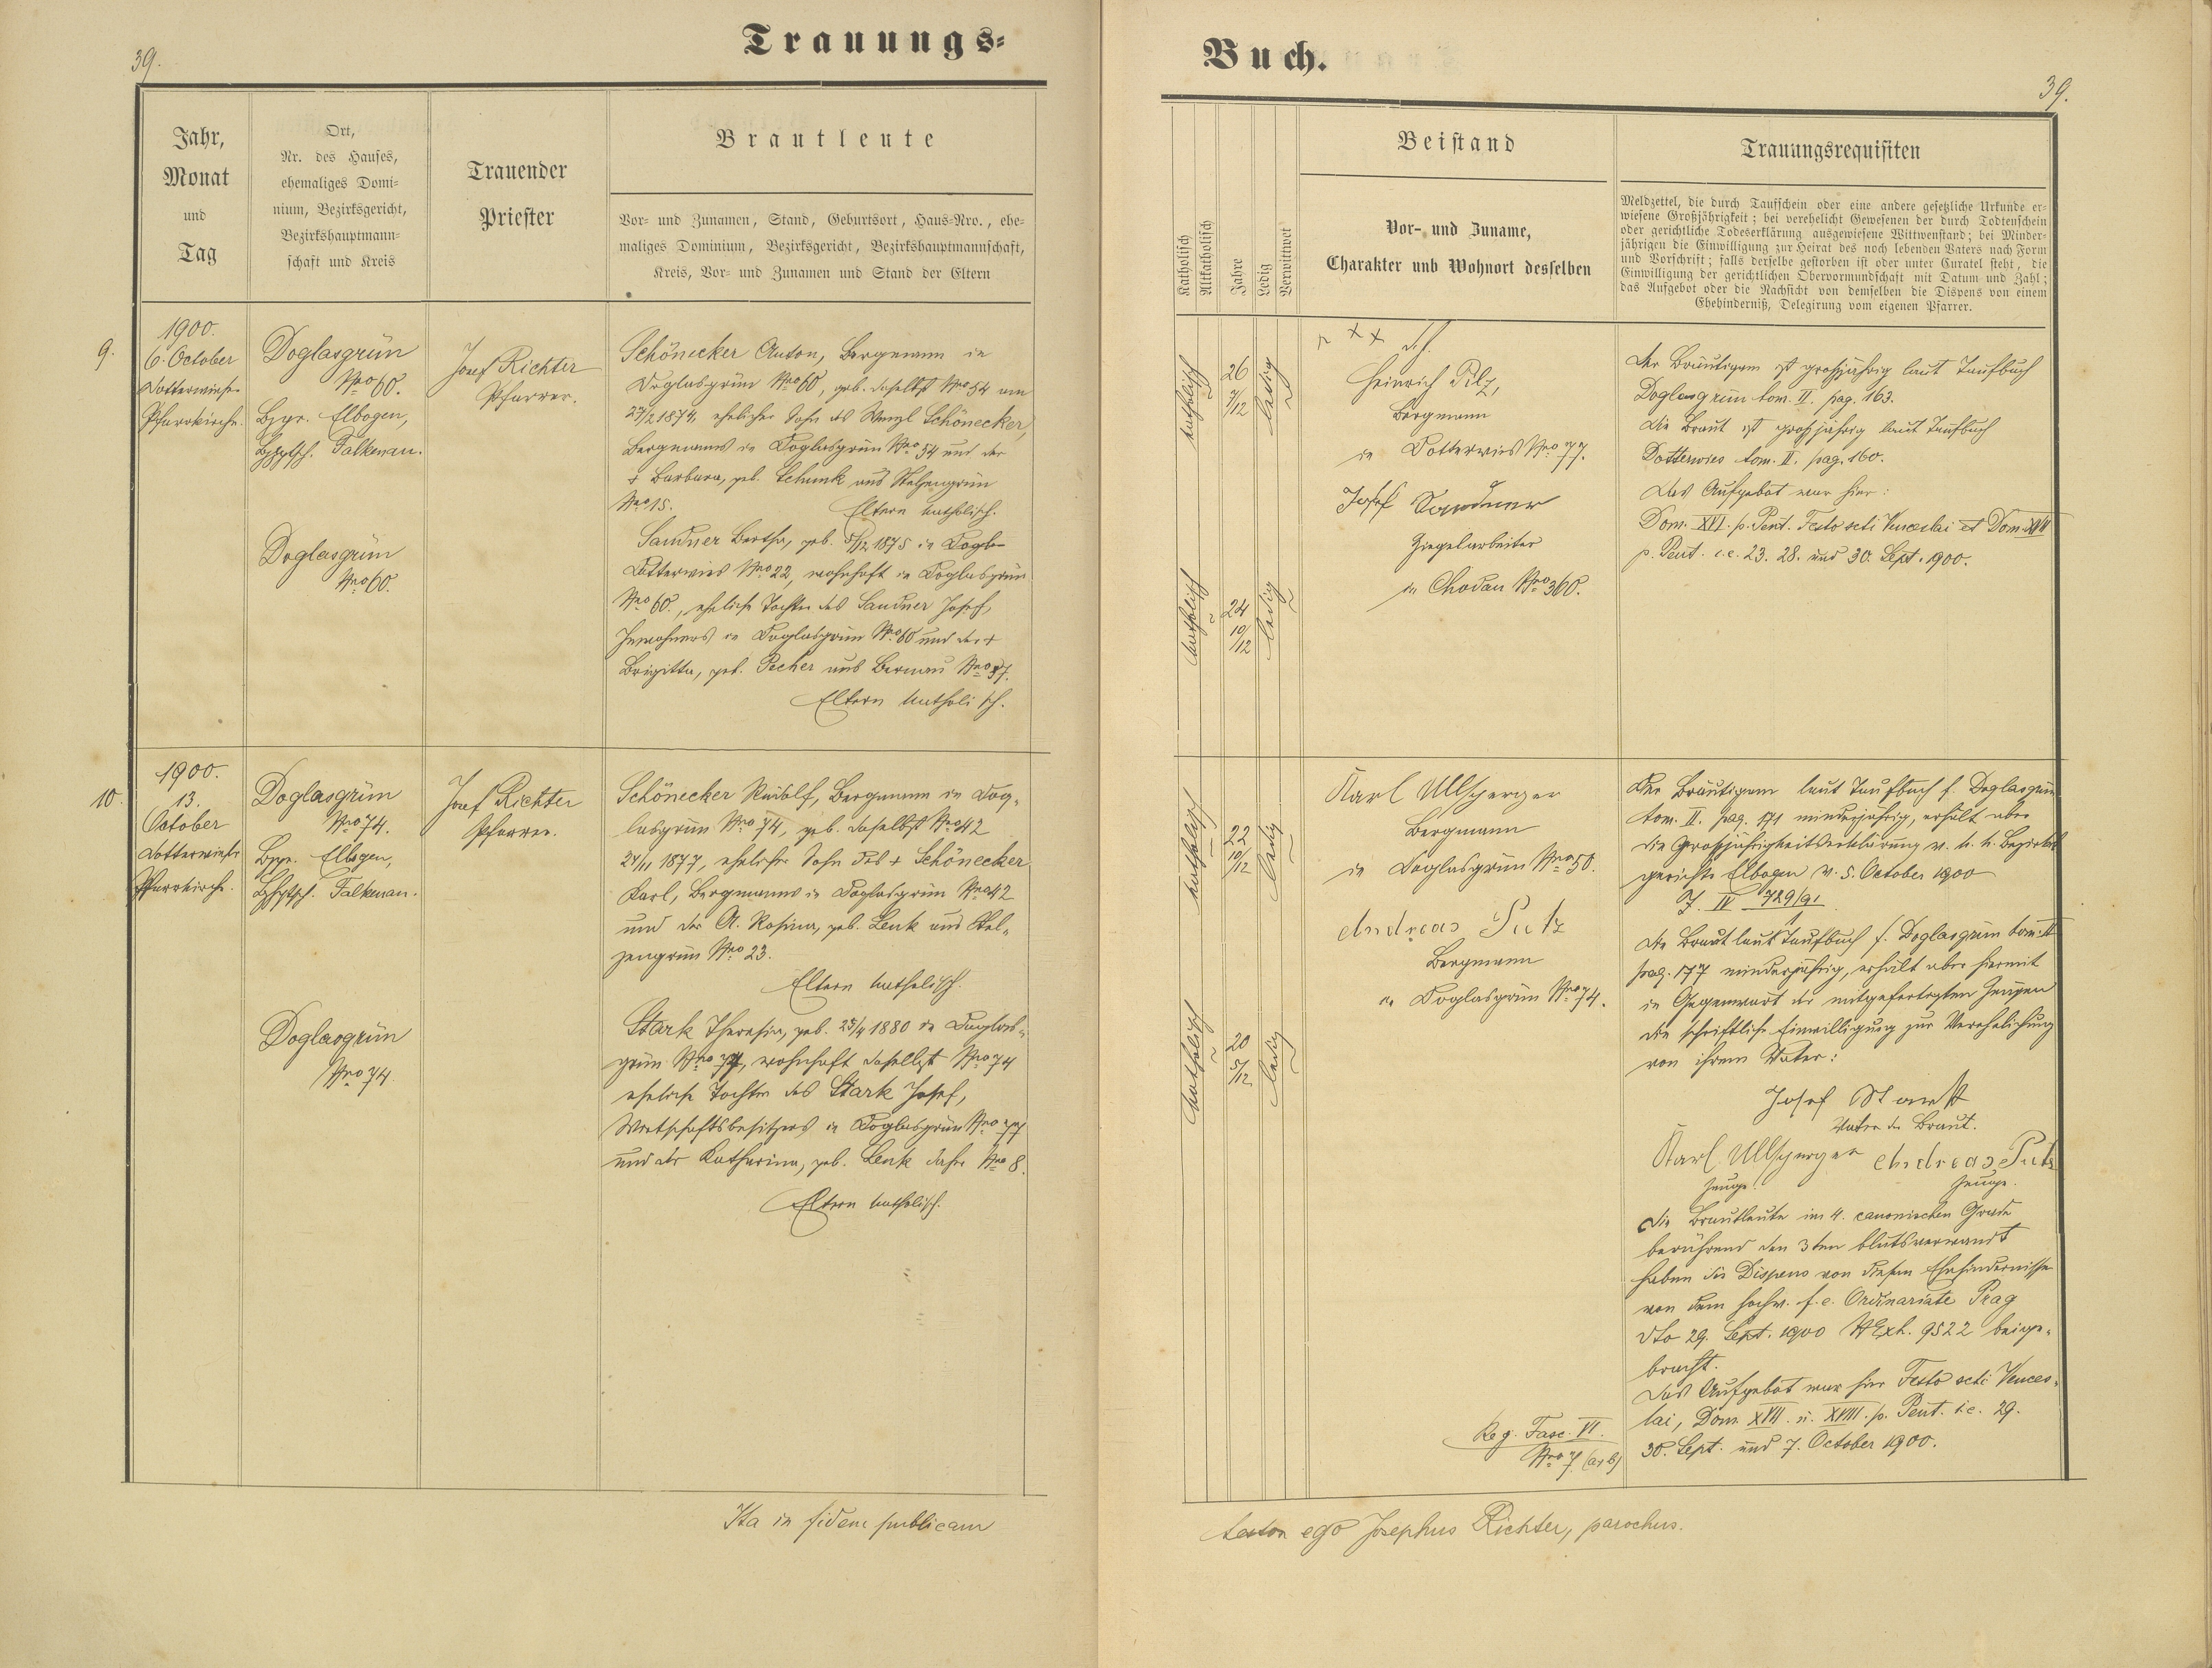 39.
Trauungs-
Jahr,
Monat
und
Tag
Ort,
Nr. des Hauses,
ehemaliges Domi-
nium, Bezirksgericht,
Bezirkshauptmann-
schaft und Kreis
Trauender
Priester
Brautleute
Vor- und Zunamen, Stand, Geburtsort, Haus-Nro., ehe-
maliges Dominium, Bezirksgericht, Bezirkshauptmannschaft,
Kreis, Vor- und Zunamen und Stand der Eltern
9.
1900.
6. October
Dotterwieser
Pfarrkirche.
Doglasgrün
Nro 60.
Bzgr. Elbogen,
Falkenau.
Doglasgrün
Nro 60.
Josef Richter
Pfarrer.
Schönecker Anton, Bergmann in
Doglasgrün Nro 60, geb. daselbst Nro 54 am
27/2 1874, ehelicher Sohn des Wenzl Schönecker,
Bergmanns in Doglasgrün Nro 54 und der
+ Barbara, geb. Schunk aus Stelzengrün
Nro 15.
Eltern katholisch.
Sandner Bertha, geb. 5/12 1875 in Dogla-
Dotterwies Nro 22, wohnhaft in Doglasgrün
Nro 60., eheliche Tochter des Sandner Josef,
Inwohners in Doglasgrün Nro 60 und der +
Brigitta, geb. Pecher aus Bernau Nro 37.
Eltern katholisch.
10
1900.
13.
October
Dotterwieser
Pfarrkirche.
Doglasgrün
Nro 74.
Bzgr. Elbogen,
Falkenau.
Doglasgrün
Nro 74.
Josef Richter
Pfarrer.
Schönecker Rudolf, Bergmann in Dog-
lasgrün Nro 74, geb. daselbst Nro 42
24/11 1877, ehelicher Sohn des + Schönecker
Karl, Bergmanns in Doglasgrün Nro 42
und der A. Rosina, geb. Lenk aus Stel-
zengrün Nro 23.
Eltern katholisch.
Stark Theresia, geb. 25/4 1880 in Doglas-
grün Nro 77, wohnhaft daselbst Nro 74
eheliche Tochter des Stark Josef,
Wirtschaftsbesitzers in Doglasgrün Nro 77
und der Katharina, geb. Lenk dahier Nro 8.
Eltern katholisch.
Ita in fidem publicam
Buch.
39.
Katholisch
Altkatholisch
Jahre
Ledig
Verwittwet
Beistand
Vor- und Zuname,
Charakter und Wohnort desselben
Trauungsrequisiten
Meldzettel, die durch Taufschein oder eine andere gesetzliche Urkunde er-
wiesene Großjährigkeit; bei verehelicht Gewesenen der durch Todtenschein
oder gerichtliche Todeserklärung ausgewiesene Wittwenstand; bei Minder-
jährigen die Einwilligung zur Heirat des noch lebenden Vaters nach Form
und Vorschrift; falls derselbe gestorben ist oder unter Curatel steht, die
Einwilligung der gerichtlichen Obervormundschaft mit Datum und Zahl;
das Aufgebot oder die Nachsicht von demselben die Dispens von einem
Ehehinderniß, Delegirung vom eigenen Pfarrer.
katholisch
26
7/12
ledig
katholisch
24
10/12
ledig
Heinrich Pilz,
Bergmann
in Dotterwies Nro 77.
Josef Sandner
Ziegelarbeiter
in Chodau Nro 360.
Der Bräutigam ist großjährig laut Taufbuch
Doglasgrün tom. II. pag. 163.
Die Braut ist großjährig laut Taufbuch
Dotterwies tom. II. pag. 160.
Das Aufgebot war hier:
Dom. XVI. p. Pent. Festo scti Venceslai et Dom. XVII
p. Pent. i.e. 23. 28. und 30. Sept. 1900.
katholisch
22
10/12
ledig
katholisch
20
5/12
ledig
Karl Ullsperger
Bergmann
in Doglasgrün Nro 50.
Andreas Putz
Bergmann
in Doglasgrün Nro 74.
Der Bräutigam laut Taufbuch f. Doglasgrün
tom. II. pag. 171 minderjährig, erhält aber
die Großjährigkeitserklärung v. k. k. Bezirks-
gerichte Elbogen v. 5. October 1900
IV 729/91
Die Braut laut Taufbuch f. Doglasgrün tom. II
pag. 177 minderjährig, erhält aber hiermit
in Gegenwart der mitgefertigten Zeugen
die schriftliche Einwilligung zur Verehelichung
von ihrem Vater:
Josef Stark
Vater der Braut.
Karl Ullsperger Andreas Putz
Zeuge. Zeuge.
Die Brautleute im 4. canonischen Grade
berührend den 3ten blutsverwandt
haben die Dispens von diesem Ehehindernisse
von dem hochw. f. e. Ordinariate Prag
dto 29. Sept. 1900 NExh. 9522 beige-
bracht.
Das Aufgebot war hier Festo scti Vences-
lai, Dom. XVII. u. XVIII. p. Pent. i.e. 29.
30. Sept. und 7. October 1900.
Reg. Fasc. VI.
Nro 7 (a+b)
testor ego Josephus Richter, parochus.